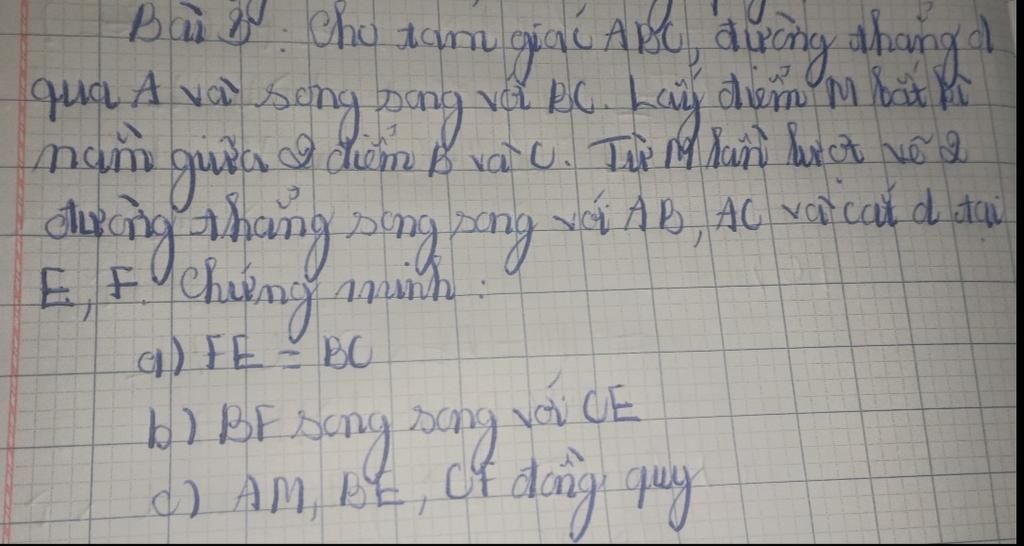 Bài 3: Cho tam giác ABC, đường thẳng d
qua A và song song với BC. Lấy điểm M bất kì
nằm giữa 2 điểm B và C. Từ M lần lượt vẽ 2
đường thẳng song song với AB, AC và cắt d tại
E, F. Chứng minh:
a) FE = BC
b) BF song song với CE
c) AM, BE, CF đồng quy